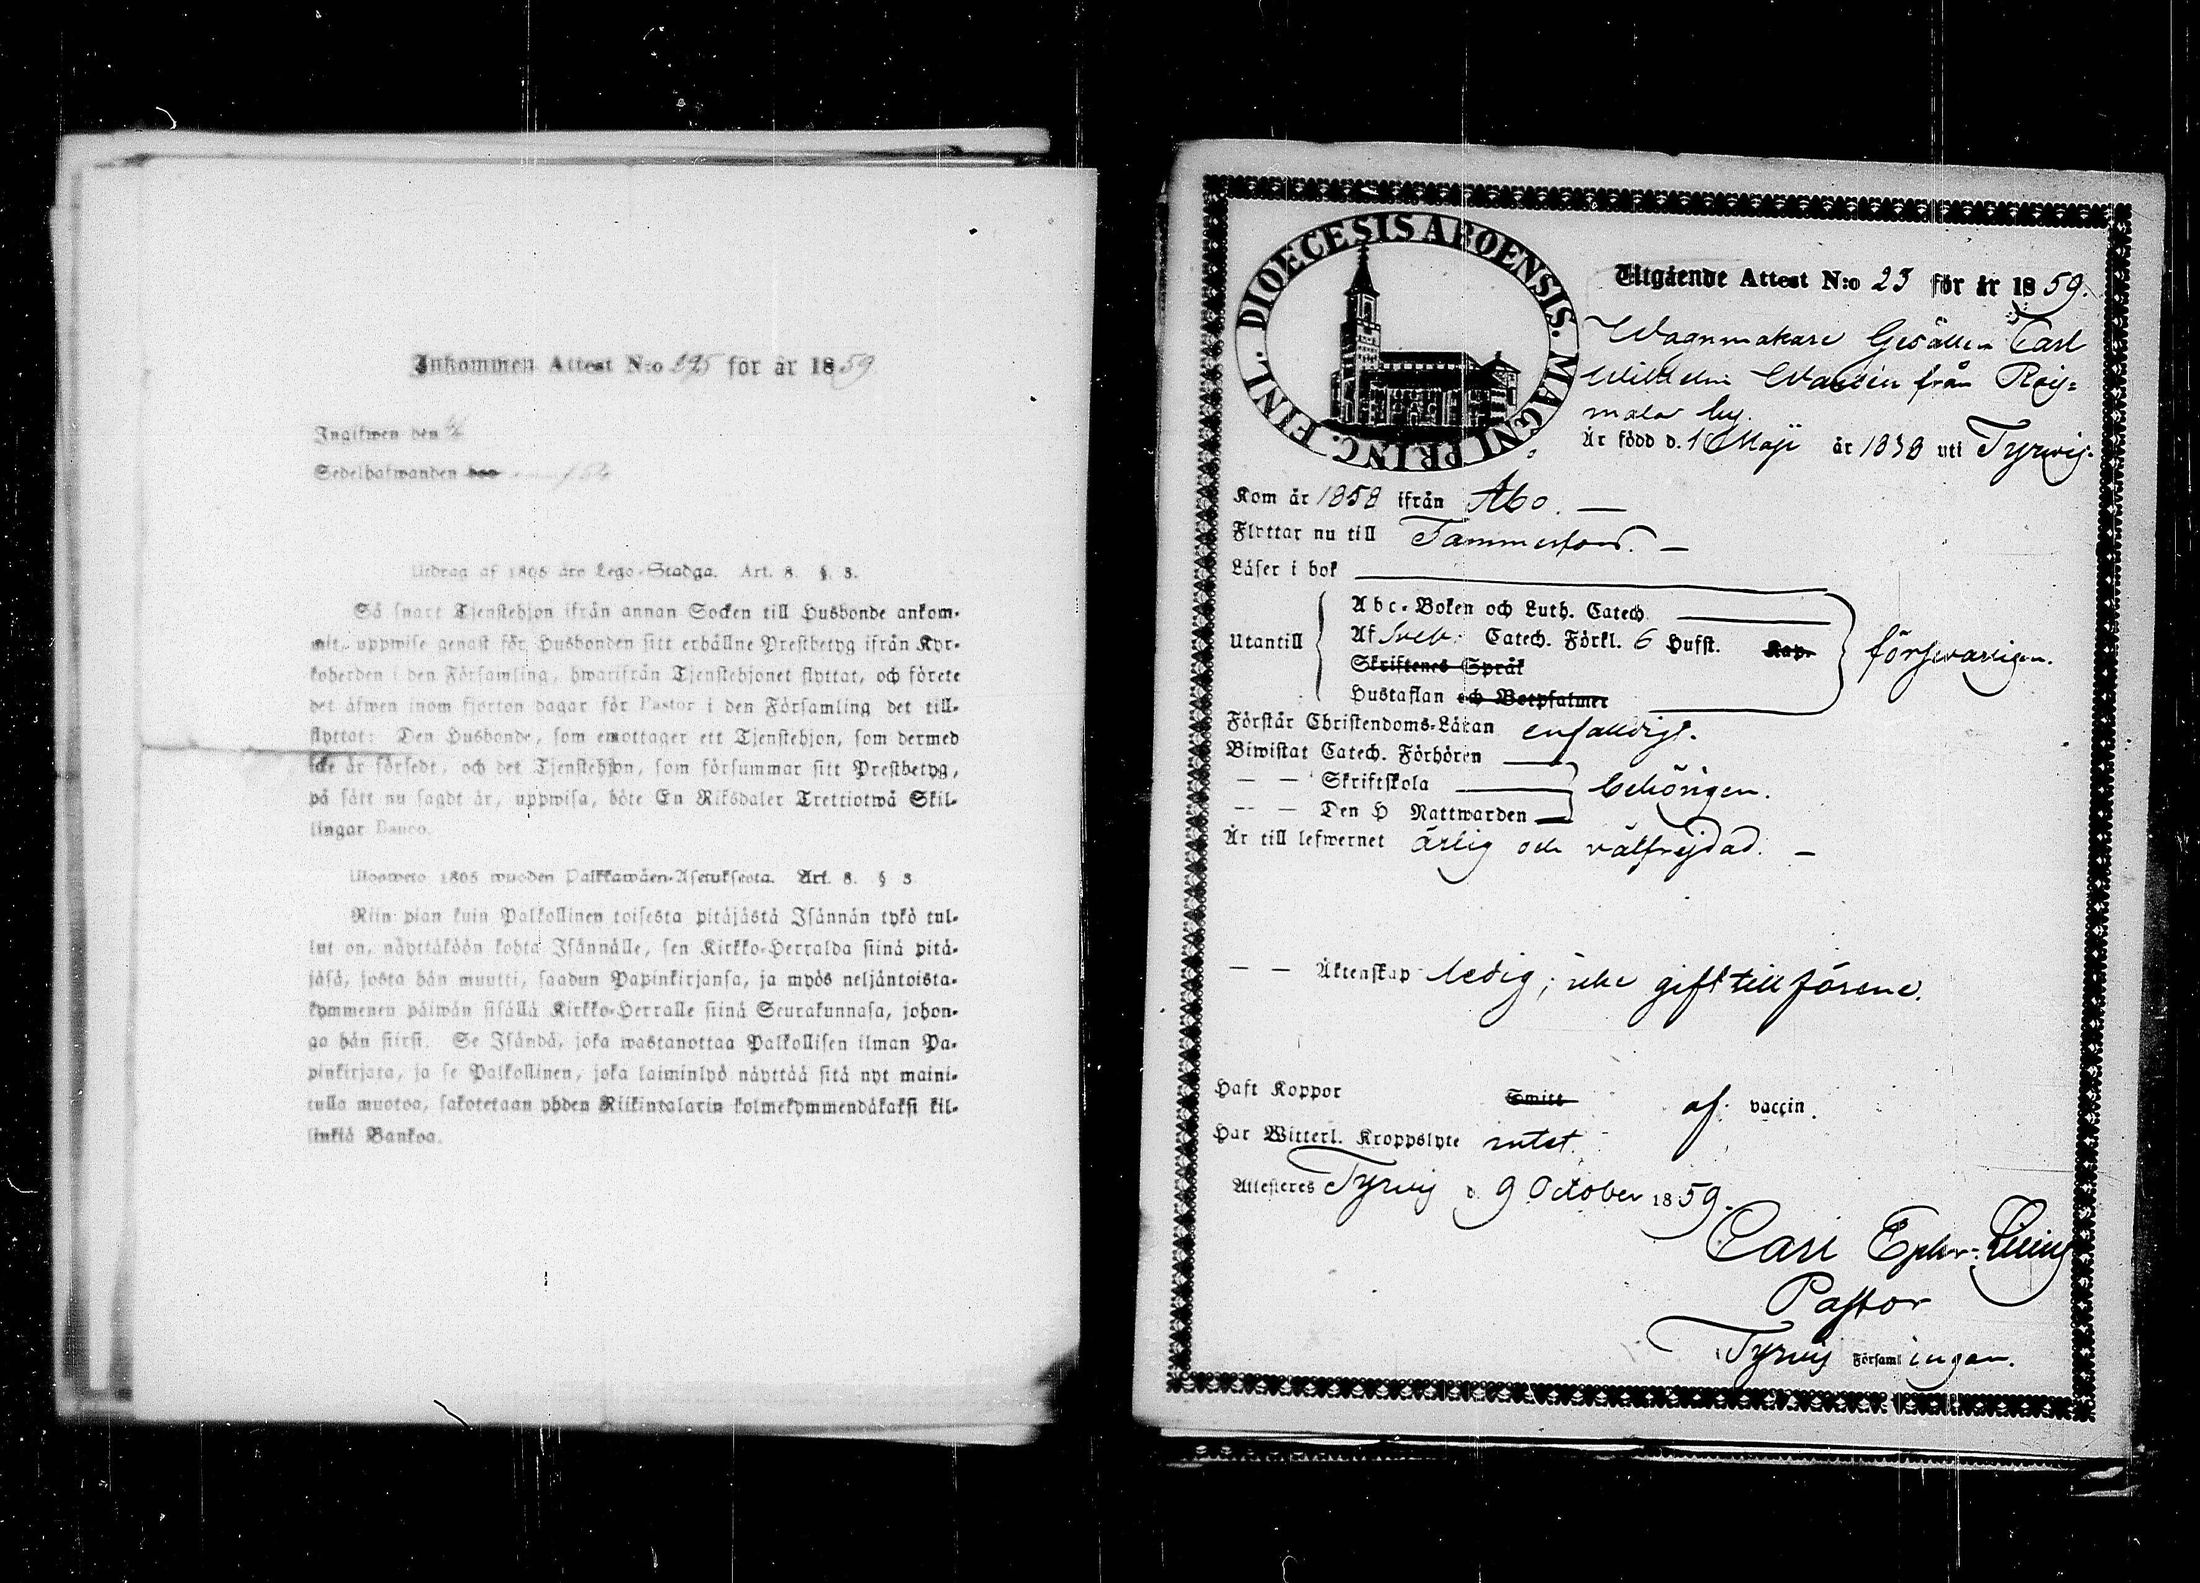 Inkommen Attest N:o 295 för år 1859
Ingifwen den
Sedelhafwanden
Utdrag af 1805 års Lego-Stadga. Art. 8. §. 3.
Så snart Tjenstehjon ifrån annan Socken till Husbonde ankom-
mit, uppwise genast för Husbonden sitt erhållne Prestbetyg ifrån Kyr-
koherden i den Församling, hwarifrån Tjenstehjonet flyttat, och förete
det äfwen inom fjorton dagar för Pastor i den Församling det till-
flyttat: Den Husbonde, som emottager ett Tjenstehjon, som dermed
icke är försedt, och det Tjenstehjon, som försummar sitt Prestbetyg,
på sätt nu sagdt är, uppwisa, böte En Riksdaler Trettiotwå Skil-
lingar Banco.
Ulosweto 1805 wuoden Palkkawäen-Asetuksesta. Art. 8. § 3
Niin pian kuin Palkollinen toisesta pitäjästä Isännän tykö tul-
lut on, näyttäköön kohta Isännälle, sen Kirkko-Herralda siinä pitä-
jäsä, josta hän muutti, saadun Papinkirjansa, ja myös neljäntoista-
kymmenen päiwän sisällä Kirkko-Herralle siinä Seurakunnasa, johon-
ga hän siirsi. Se Isändä, joka wastanottaa Palkollisen ilman Pa-
pinkirjata, ja se Palkollinen, joka laiminlyö näyttää sitä nyt maini-
tulla muotoa, sakotetaan yhden Riikintalarin kolmekymmendäkaksi kil-
linkiä Bankoa.
DIOECESIS ABOENSIS. MAGNI PRINC. FINL.
Utgående Attest N:o 23 för år 1859.
Wagnmakare Gesällen Carl
Wilhelm från Rois=
mala by.
Är född d. 1 Maji år 1839 uti Tyrvis.
Kom år 1858 ifrån Åbo. —
Flyttar nu till Tammerfors. —
Läser i bok
Utantill
Abc-Boken och Luth. Catech
Af Sveb. Catech. Förkl. 6 Hufst. Kap.
Skriftenes Språk
Hustaflan och Botpsalmer
försvarligen.
Förstår Christendoms-Läran enfaldigt.
Biwistat Catech. Förhören
— — Skriftskola
— — Den H Nattwarden
behörigen.
Är till lefwernet ärlig och välfrejdad. —
— — Äktenskap ledig; icke gift tillförene.
Haft Koppor Smitt af vaccin.
Har Witterl. Kroppslyte intet.
Attesteres Tyrvis d. 9 October 1859.
Carl Ephr. Lilius
Pastor
Tyrvis Församlingen.